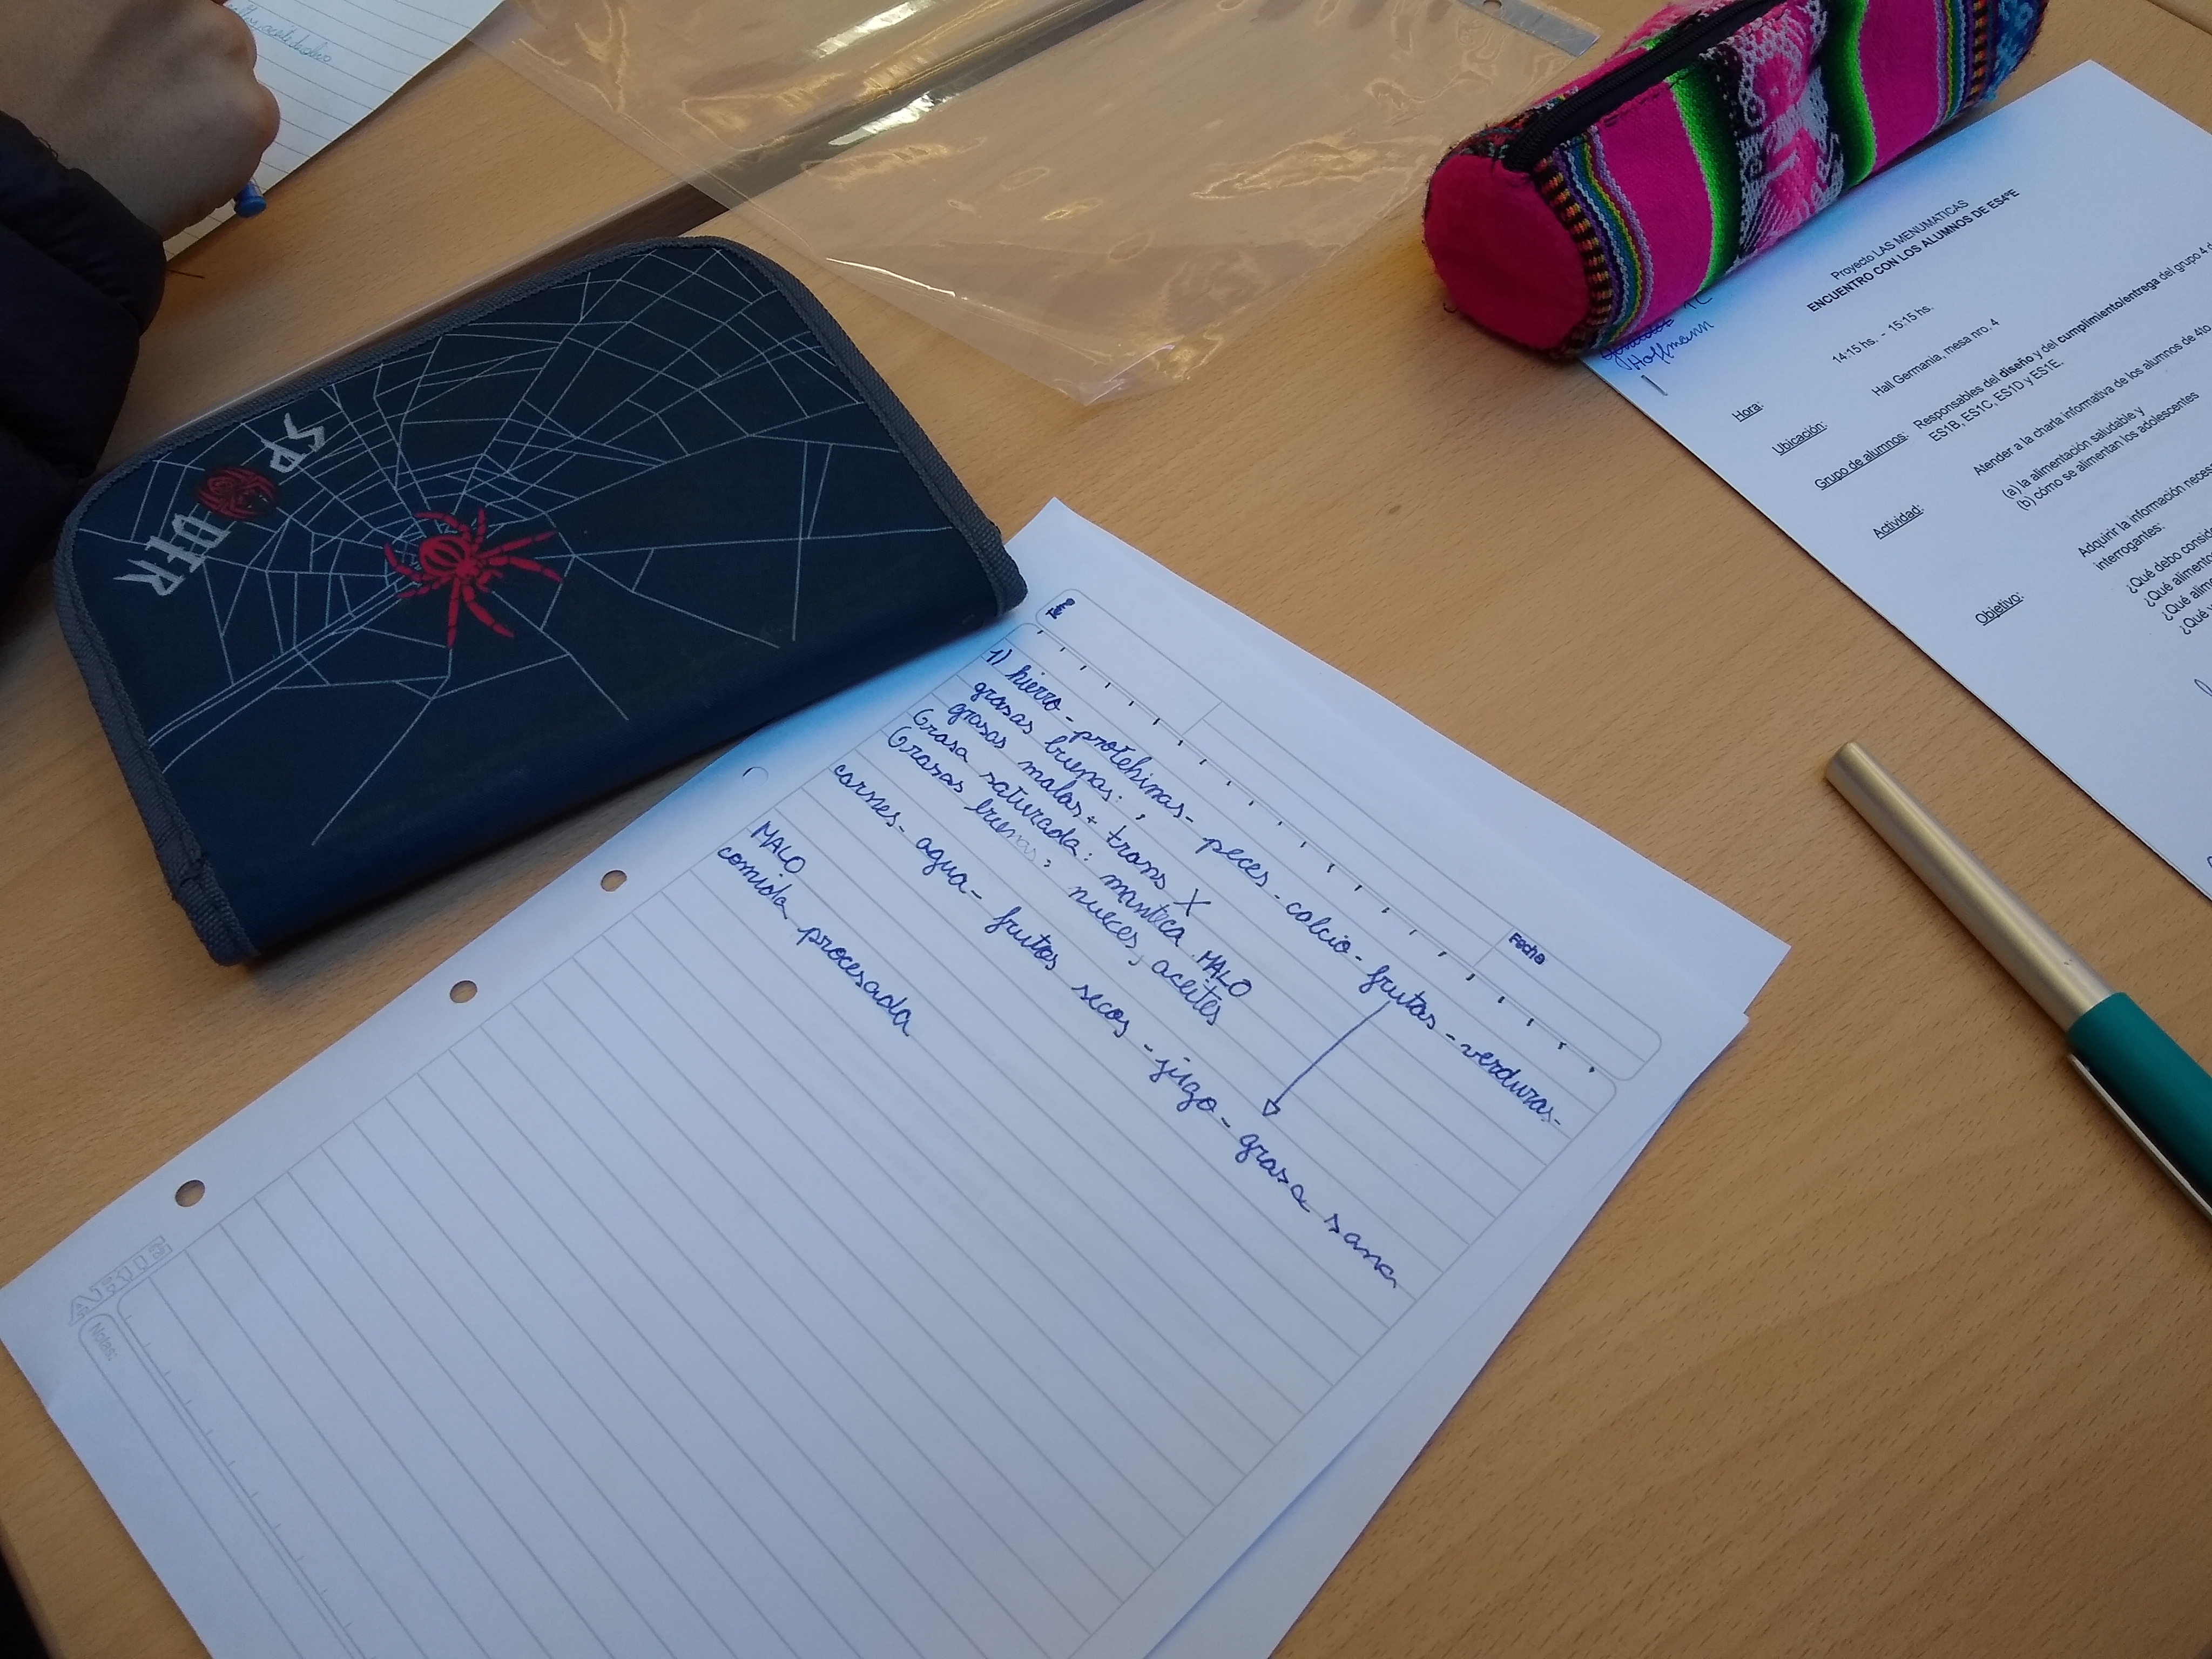 SPIDER
Tema
Fecha
1) hierro - protehinas - peces - calcio - frutas - verduras -
grasas buenas:
grasas malas + trans X
Grasa saturada: manteca MALO
Grasas buenas: nueces, aceites
carnes - agua - frutos secos - jugo - grasa sana
MALO
comida procesada
Notas:
Hoffmann
Proyecto LAS MENUMATICAS
ENCUENTRO CON LOS ALUMNOS DE ES4ºE
Hora: 14:15 hs. - 15:15 hs.
Ubicación: Hall Germania, mesa nro. 4
Grupo de alumnos: Responsables del diseño y del cumplimiento/entrega del grupo 4
ES1B, ES1C, ES1D y ES1E.
Actividad: Atender a la charla informativa de los alumnos de 4to
(a) la alimentación saludable y
(b) cómo se alimentan los adolescentes
Objetivo: Adquirir la información neces
interrogantes:
¿Qué debo consid
¿Qué alimento
¿Qué alim
¿Qué